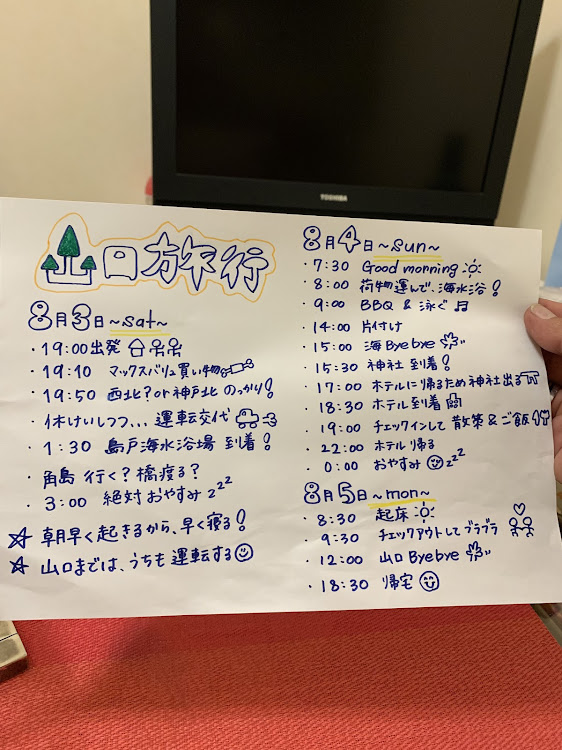 TOSHIBA
山口旅行
8月3日~sat~
・19:00出発
・19:10 マックスバリュ買い物
・19:50 西北?or神戸北 のっかり!
・休けいしつつ... 運転交代
・1:30 島戸海水浴場 到着!
・角島 行く?橋渡る?
・3:00 絶対おやすみzzz
☆ 朝早く起きるから、早く寝る!
☆ 山口までは、うちも運転する☺
8月4日~sun~
・7:30 Good morning
・8:00 荷物運んで、海水浴!
・9:00 BBQ & 泳ぐ♬
・14:00 片付け
・15:00 海Bye bye
・15:30 神社 到着!
・17:00 ホテルに帰るため神社出る
・18:30 ホテル到着
・19:00 チェックインして散策&ご飯
・22:00 ホテル帰る
・0:00 おやすみ☺zzz
8月5日~mon~
・8:30 起床
・9:30 チェックアウトしてブラブラ
・12:00 山口Bye bye
・18:30 帰宅☺